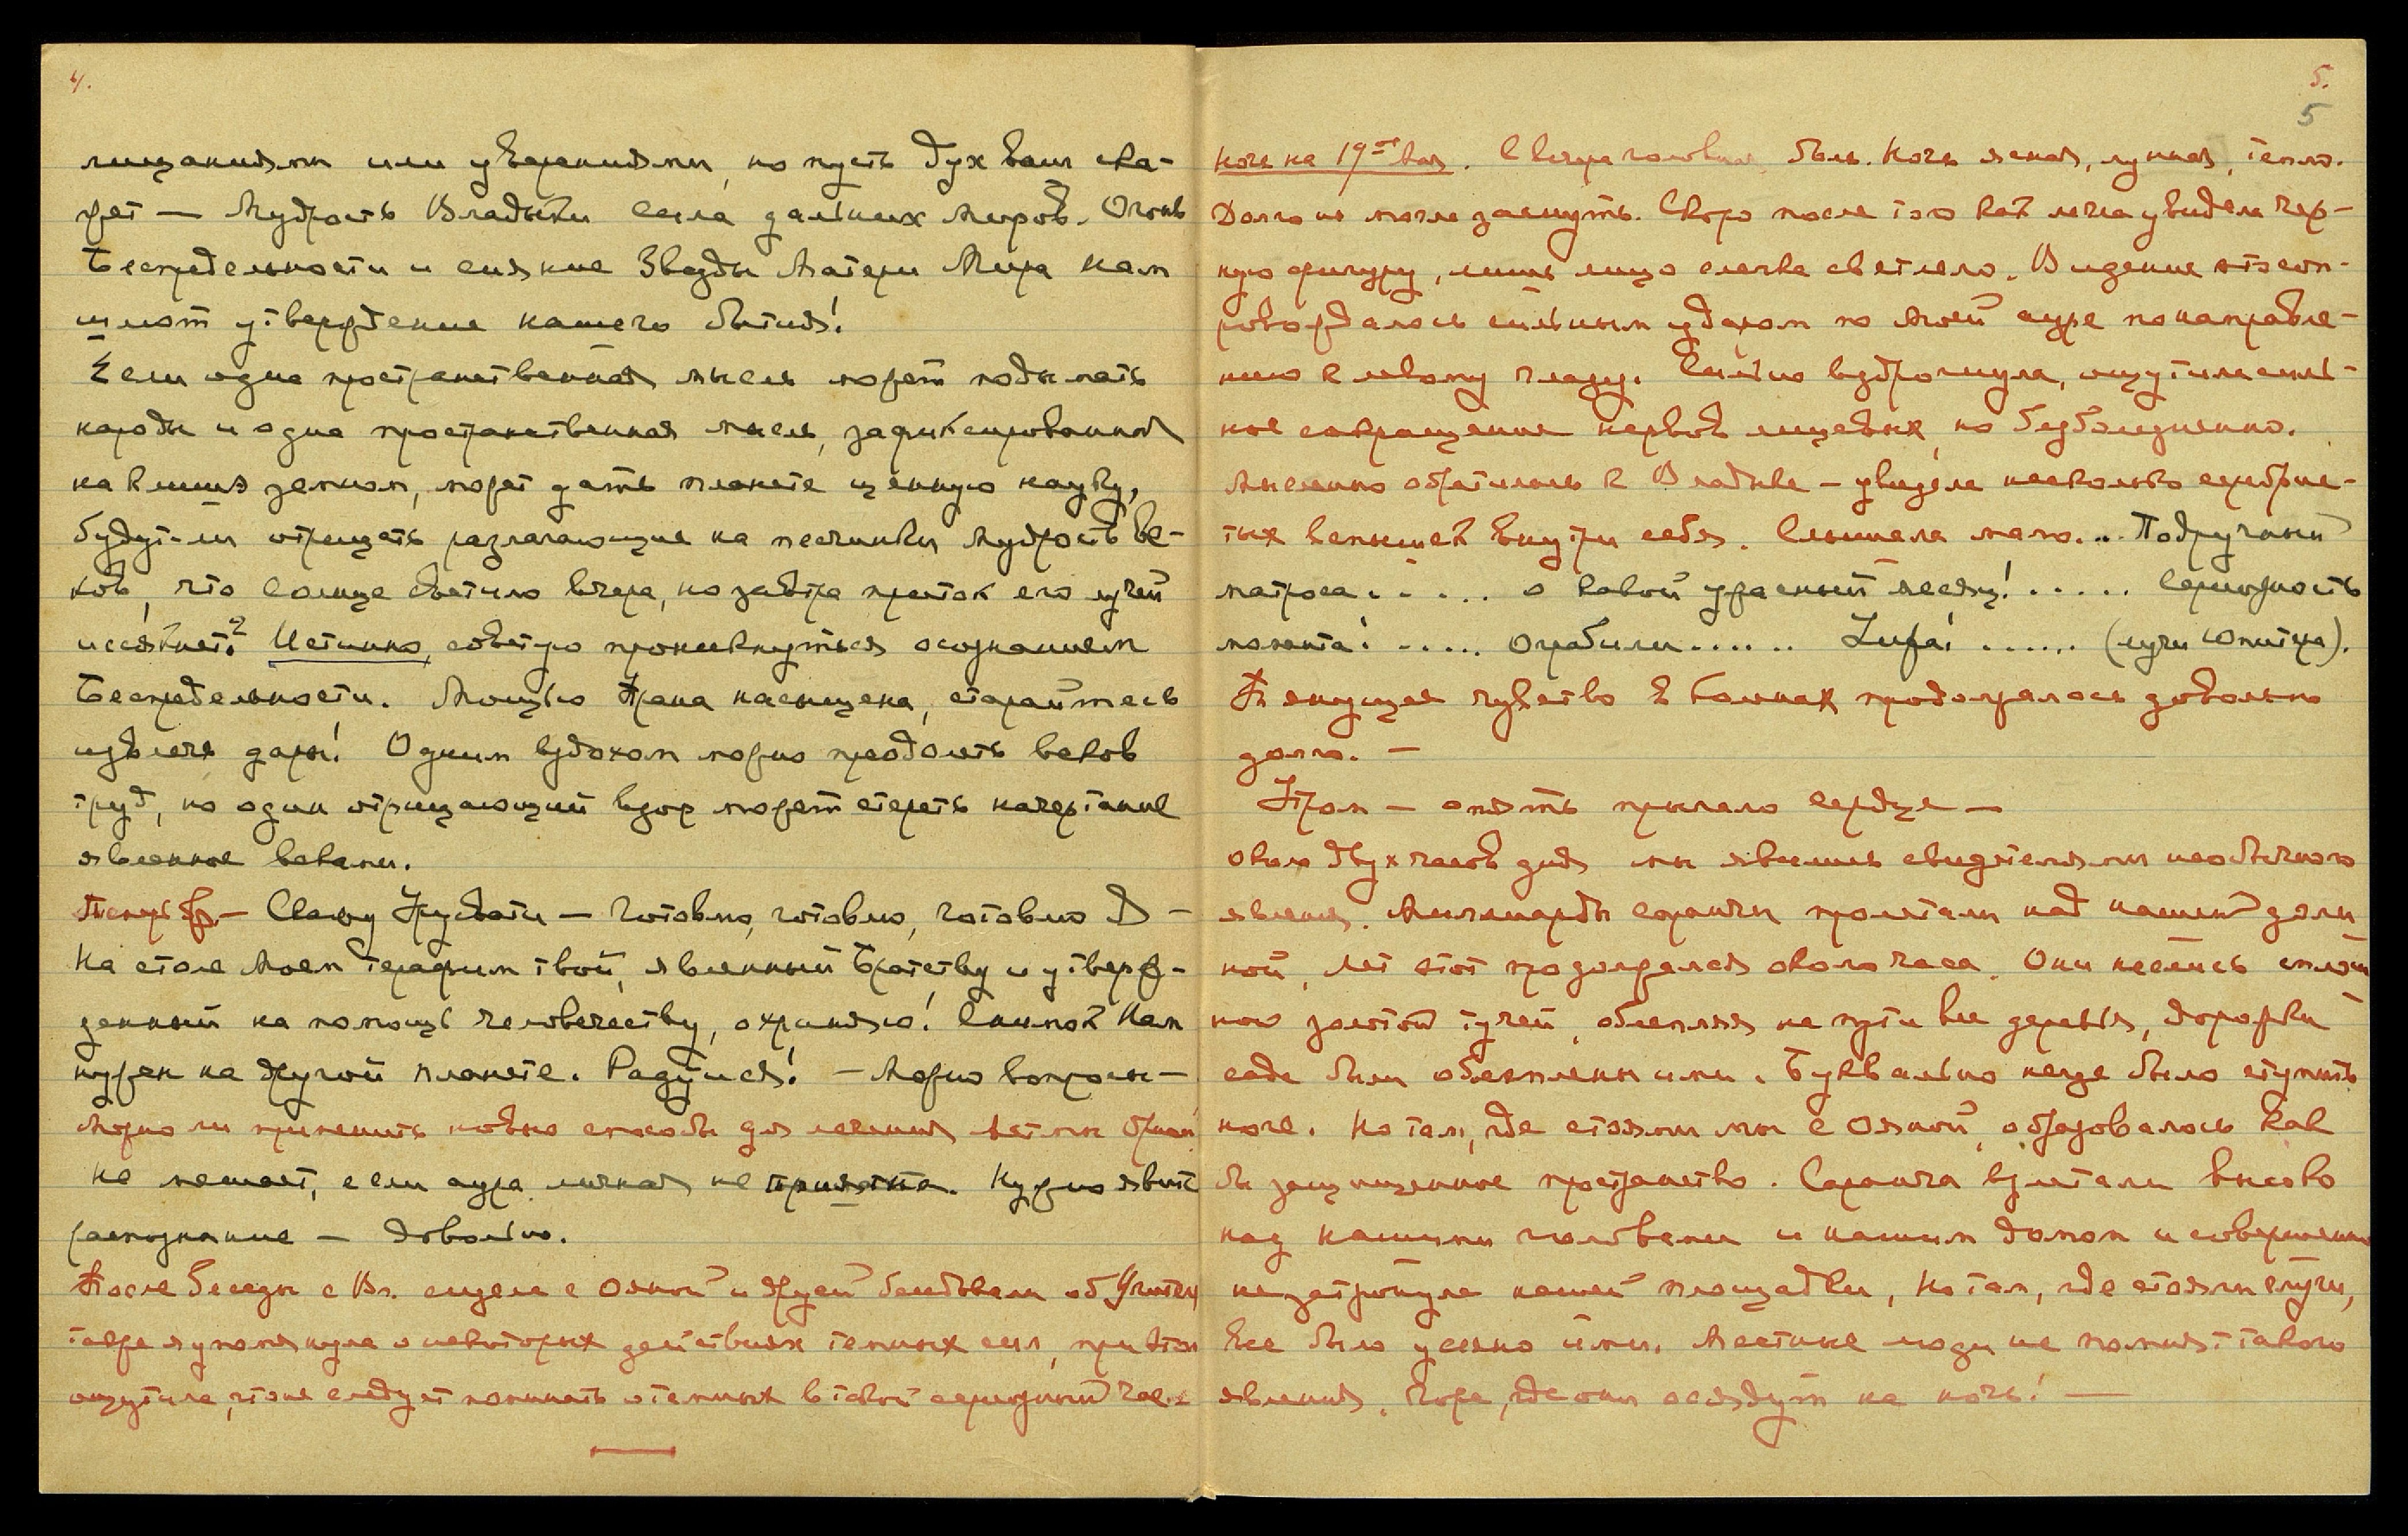 4.
лицаниями или уверениями, но пусть дух ваш ска-
жет — Мудрость Владыки сила дальних Миров. Огонь
Беспредельности и сияние Звезды Матери Мира нам
шлют утверждение нашего бытия!
Если одна пространственная мысль может поднимать
народы и одна пространственная мысль, зафиксированная
на клише земном, может дать планете ценную науку,
будут-ли отрицать разлагающие на песчинки Мудрость Ве-
ков, что солнце светило вчера, но завтра приток его лучей
иссякнет? Истинно, советую проникнуться осознанием
Беспредельности. Мощью Прана насыщена, старайтесь
извлечь дары! Одним вздохом можно преодолеть веков
труд, но один отрицающий взор может стереть начертание
явленное веками.
— Скажу Урусвати — готовлю, готовлю, готовлю Я —
На столе Моем терафим твой, явленный Братству и утверж-
денный на помощь человечеству, охраняю! Снимок Нам
нужен на другой планете. Радуйся! — Можно вопросы —
Можно ли применить новые способы для лечения
не мешает, если аура личная не приятна. Нужно явить
распознание — довольно.
После беседы с Вл. сидела с Ояной и Друг беседовали об
также я упомянула о некоторых действиях темных сил, при этом
ощутила, что не следует поминать о темных в такой серьезный час.
5.
5
Ночь на 19-ое Мая. С вечера головная боль. Ночь ясная, лунная, тепло.
Долго не могла заснуть. Скоро после того как легла увидела чер-
ную фигуру, лишь лицо слегка светлело. Видение это соп-
ровождалось сильным ударом по моей ауре по направле-
нию к левому глазу. Сильно вздрогнула, ощутила силь-
ное сокращение нервов лицевых, но безболезненно.
Мысленно обратилась к Владыке — увидела несколько серебрис-
тых вспышек внутри себя. Слышала мало... Подручный
матроса..... о какой ужасный месяц!..... Серьезность
момента! ..... Ограбили...... Lufa! ...... (лучи Юпитера).
Тянущее чувство в конечностях продолжалось довольно
долго. —
Утром — опять прыгало сердце —
Около двух часов дня мы явились свидетелями необычного
явления. Миллиарды саранчи пролетали над нашей доли
ной, лёт этот продолжался около часа. Они неслись сплош
ною золотой тучей, облепляя на пути все деревья, дорожки
сада были облеплены ими. Буквально негде было ступить
ноге. Но там, где стояли мы с Ояной, образовалось как
бы защищенное пространство. Саранча взлетали высоко
над нашими головами и нашим домом и совершенно
не затронула нашей площадки, но там, где стояли слуги,
все было усеяно ими. Местные люди не помнят такого
явления. Горе, где они осядут на ночь! —